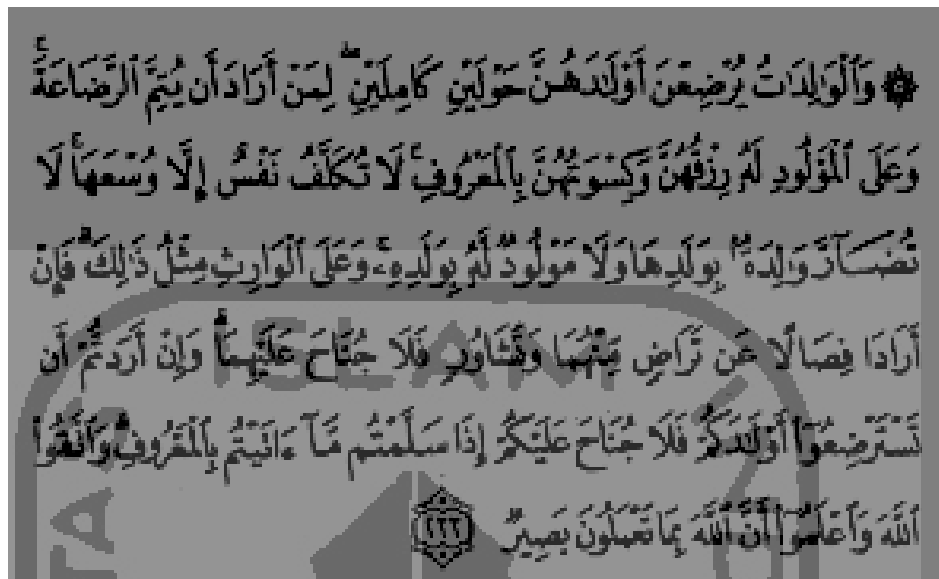 ۞ وَٱلْوَٰلِدَٰتُ يُرْضِعْنَ أَوْلَٰدَهُنَّ حَوْلَيْنِ كَامِلَيْنِ ۖ لِمَنْ أَرَادَ أَن يُتِمَّ ٱلرَّضَاعَةَ ۚ
وَعَلَى ٱلْمَوْلُودِ لَهُۥ رِزْقُهُنَّ وَكِسْوَتُهُنَّ بِٱلْمَعْرُوفِ ۚ لَا تُكَلَّفُ نَفْسٌ إِلَّا وُسْعَهَا ۚ لَا
تُضَآرَّ وَٰلِدَةٌۢ بِوَلَدِهَا وَلَا مَوْلُودٌ لَّهُۥ بِوَلَدِهِۦ ۚ وَعَلَى ٱلْوَارِثِ مِثْلُ ذَٰلِكَ ۗ فَإِنْ
أَرَادَا فِصَالًا عَن تَرَاضٍ مِّنْهُمَا وَتَشَاوُرٍ فَلَا جُنَاحَ عَلَيْهِمَا ۗ وَإِنْ أَرَدتُّمْ أَن
تَسْتَرْضِعُوٓا۟ أَوْلَٰدَكُمْ فَلَا جُنَاحَ عَلَيْكُمْ إِذَا سَلَّمْتُم مَّآ ءَاتَيْتُم بِٱلْمَعْرُوفِ ۗ وَٱتَّقُوا۟
ٱللَّهَ وَٱعْلَمُوٓا۟ أَنَّ ٱللَّهَ بِمَا تَعْمَلُونَ بَصِيرٌ
ISLAM